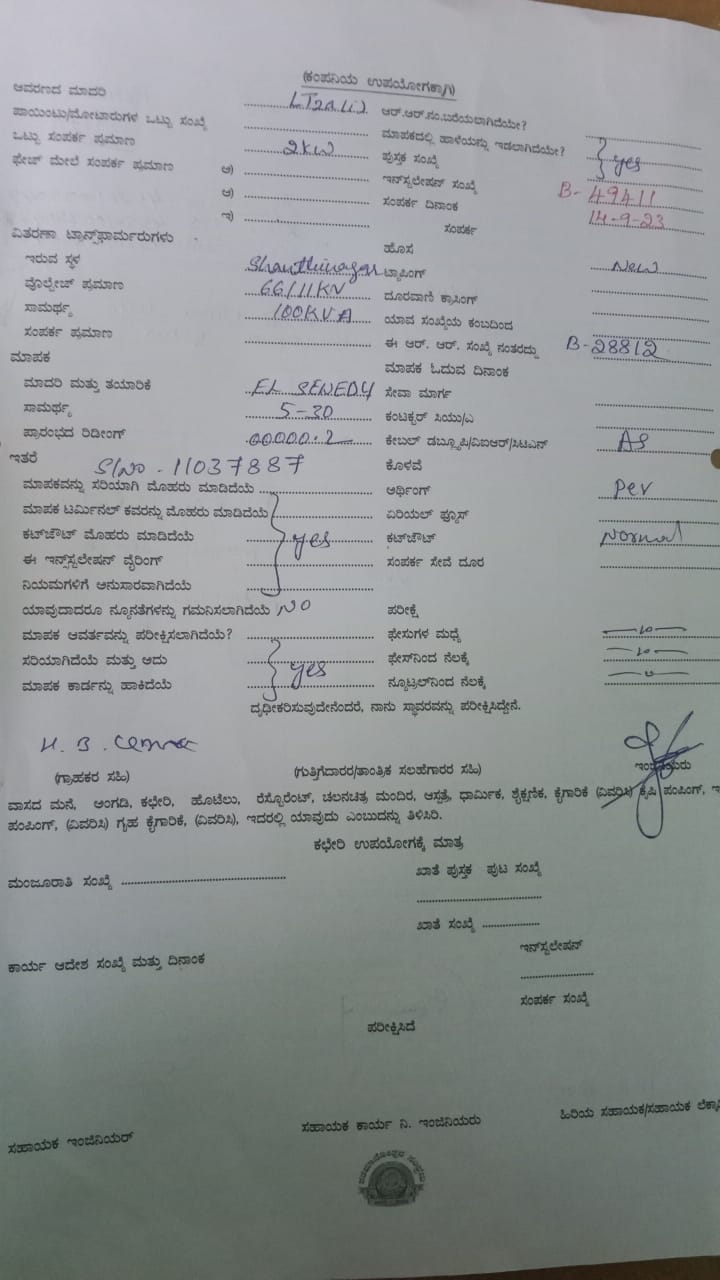 (ಕಂಪನಿಯ ಉಪಯೋಗಕ್ಕಾಗಿ)
ಆವರಣದ ಮಾದರಿ LT2A(i) ಆರ್.ಆರ್.ನಂ.ಬರೆಯಲಾಗಿದೆಯೇ?
ಪಾಯಿಂಟು/ಮೋಟಾರುಗಳ ಒಟ್ಟು ಸಂಖ್ಯೆ ಮಾಪಕದಲ್ಲಿ ಹಾಳೆಯನ್ನು ಇಡಲಾಗಿದೆಯೇ? yes
ಒಟ್ಟು ಸಂಪರ್ಕ ಪ್ರಮಾಣ 2KW ಪುಸ್ತಕ ಸಂಖ್ಯೆ
ಫೇಜ್ ಮೇಲೆ ಸಂಪರ್ಕ ಪ್ರಮಾಣ ಅ) ಇನ್‌ಸ್ಟಲೇಷನ್ ಸಂಖ್ಯೆ B-49411
ಆ) ಸಂಪರ್ಕ ದಿನಾಂಕ 14-9-23
ಇ) ಸಂಪರ್ಕ
ವಿತರಣಾ ಟ್ರಾನ್ಸ್‌ಫಾರ್ಮರುಗಳು ಹೊಸ
ಇರುವ ಸ್ಥಳ Shanthinagar ಟ್ಯಾಪಿಂಗ್ New
ವೊಲ್ಟೇಜ್ ಪ್ರಮಾಣ 66/11KV ದೂರವಾಣಿ ಕ್ರಾಸಿಂಗ್
ಸಾಮರ್ಥ್ಯ 100KVA ಯಾವ ಸಂಖ್ಯೆಯ ಕಂಬದಿಂದ
ಸಂಪರ್ಕ ಪ್ರಮಾಣ ಈ ಆರ್. ಆರ್. ಸಂಖ್ಯೆ ನಂತರದ್ದು B-28812
ಮಾಪಕ ಮಾಪಕ ಓದುವ ದಿನಾಂಕ
ಮಾದರಿ ಮತ್ತು ತಯಾರಿಕೆ EL ಸೇವಾ ಮಾರ್ಗ
ಸಾಮರ್ಥ್ಯ 5-30 ಕಂಟಕ್ಟರ್ ಸಿಯು/ಎ
ಪ್ರಾರಂಭದ ರಿಡೀಂಗ್ 00000.2 ಕೇಬಲ್ ಡಬ್ಲ್ಯೂಪಿ/ವಿಐಆರ್/ಸಿಟಿಎಸ್ AS
ಇತರೆ S/No - 11037887 ಕೊಳವೆ
ಮಾಪಕವನ್ನು ಸರಿಯಾಗಿ ಮೊಹರು ಮಾಡಿದೆಯೆ ಅರ್ಥಿಂಗ್ per
ಮಾಪಕ ಟರ್ಮಿನಲ್ ಕವರನ್ನು ಮೊಹರು ಮಾಡಿದೆಯೆ ಏರಿಯಲ್ ಫ್ಯೂಸ್
ಕಟ್‌ಔಟ್ ಮೊಹರು ಮಾಡಿದೆಯೆ yes ಕಟ್‌ಔಟ್ Normal
ಈ ಇನ್‌ಸ್ಟಲೇಷನ್ ವೈರಿಂಗ್ ಸಂಪರ್ಕ ಸೇವೆ ದೂರ
ನಿಯಮಗಳಿಗೆ ಅನುಸಾರವಾಗಿದೆಯೆ
ಯಾವುದಾದರೂ ನ್ಯೂನತೆಗಳನ್ನು ಗಮನಿಸಲಾಗಿದೆಯೆ NO ಪರೀಕ್ಷೆ
ಮಾಪಕ ಆವರ್ತವನ್ನು ಪರೀಕ್ಷಿಸಲಾಗಿದೆಯೆ? ಫೇಸುಗಳ ಮಧ್ಯೆ
ಸರಿಯಾಗಿದೆಯೆ ಮತ್ತು ಅದು yes ಫೇಸ್‌ನಿಂದ ನೆಲಕ್ಕೆ
ಮಾಪಕ ಕಾರ್ಡನ್ನು ಹಾಕಿದೆಯೆ ನ್ಯೂಟ್ರಲ್‌ನಿಂದ ನೆಲಕ್ಕೆ
ದೃಢೀಕರಿಸುವುದೇನೆಂದರೆ, ನಾನು ಸ್ಥಾವರವನ್ನು ಪರೀಕ್ಷಿಸಿದ್ದೇನೆ.
H. B.
(ಗ್ರಾಹಕರ ಸಹಿ) (ಗುತ್ತಿಗೆದಾರರ/ತಾಂತ್ರಿಕ ಸಲಹೆಗಾರರ ಸಹಿ)
ವಾಸದ ಮನೆ, ಅಂಗಡಿ, ಕಛೇರಿ, ಹೊಟೆಲು, ರೆಸ್ಟೊರೆಂಟ್, ಚಲನಚಿತ್ರ ಮಂದಿರ, ಆಸ್ಪತ್ರೆ, ಧಾರ್ಮಿಕ, ಶೈಕ್ಷಣಿಕ, ಕೈಗಾರಿಕೆ (ವಿವರಿಸಿ) ಕೃಷಿ ಪಂಪಿಂಗ್,
ಪಂಪಿಂಗ್, (ವಿವರಿಸಿ) ಗೃಹ ಕೈಗಾರಿಕೆ, (ವಿವರಿಸಿ), ಇದರಲ್ಲಿ ಯಾವುದು ಎಂಬುದನ್ನು ತಿಳಿಸಿರಿ.
ಕಛೇರಿ ಉಪಯೋಗಕ್ಕೆ ಮಾತ್ರ
ಮಂಜೂರಾತಿ ಸಂಖ್ಯೆ ಖಾತೆ ಪುಸ್ತಕ ಪುಟ ಸಂಖ್ಯೆ
ಖಾತೆ ಸಂಖ್ಯೆ
ಕಾರ್ಯ ಆದೇಶ ಸಂಖ್ಯೆ ಮತ್ತು ದಿನಾಂಕ ಇನ್‌ಸ್ಟಲೇಷನ್
ಸಂಪರ್ಕ ಸಂಖ್ಯೆ
ಪರೀಕ್ಷಿಸಿದೆ
ಸಹಾಯಕ ಇಂಜಿನಿಯರ್ ಸಹಾಯಕ ಕಾರ್ಯ ನಿ. ಇಂಜಿನಿಯರು ಹಿರಿಯ ಸಹಾಯಕ/ಸಹಾಯಕ